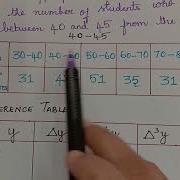 the number of students who
between 40 and 45 from the
40-45
30-40 40- 50-60 60-70 70-8
31 4 51 35 31
ERENCE Table
y Δy y Δ³y